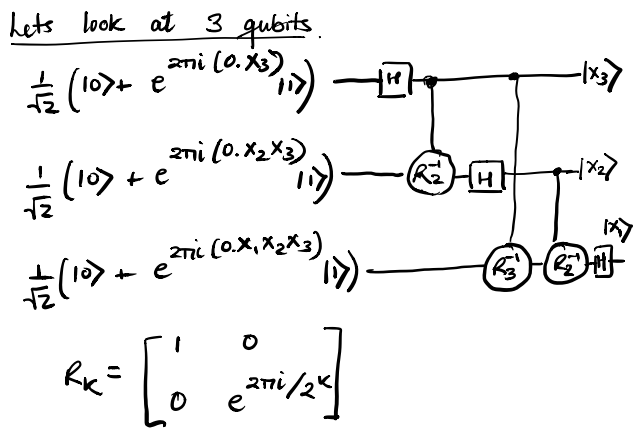 Lets look at 3 qubits.
1/√2 (|0⟩ + e^{2πi(0.x₃)} |1⟩) H |x₃⟩
1/√2 (|0⟩ + e^{2πi(0.x₂x₃)} |1⟩) R₂⁻¹ H |x₂⟩
1/√2 (|0⟩ + e^{2πi(0.x₁x₂x₃)} |1⟩) R₃⁻¹ R₂⁻¹ H |x₁⟩
R_K = [1 0
0 e^{2πi/2^K}]